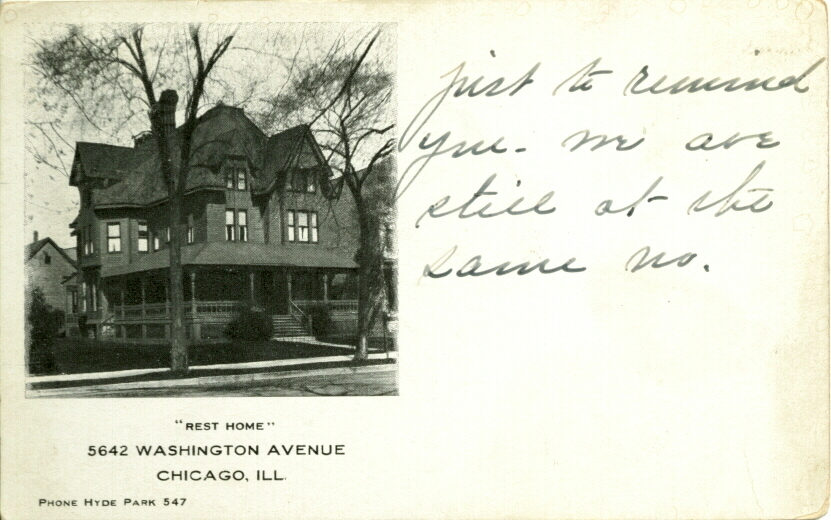 just to remind
you - we are
still at the
same no.
"REST HOME"
5642 WASHINGTON AVENUE
CHICAGO, ILL.
PHONE HYDE PARK 547